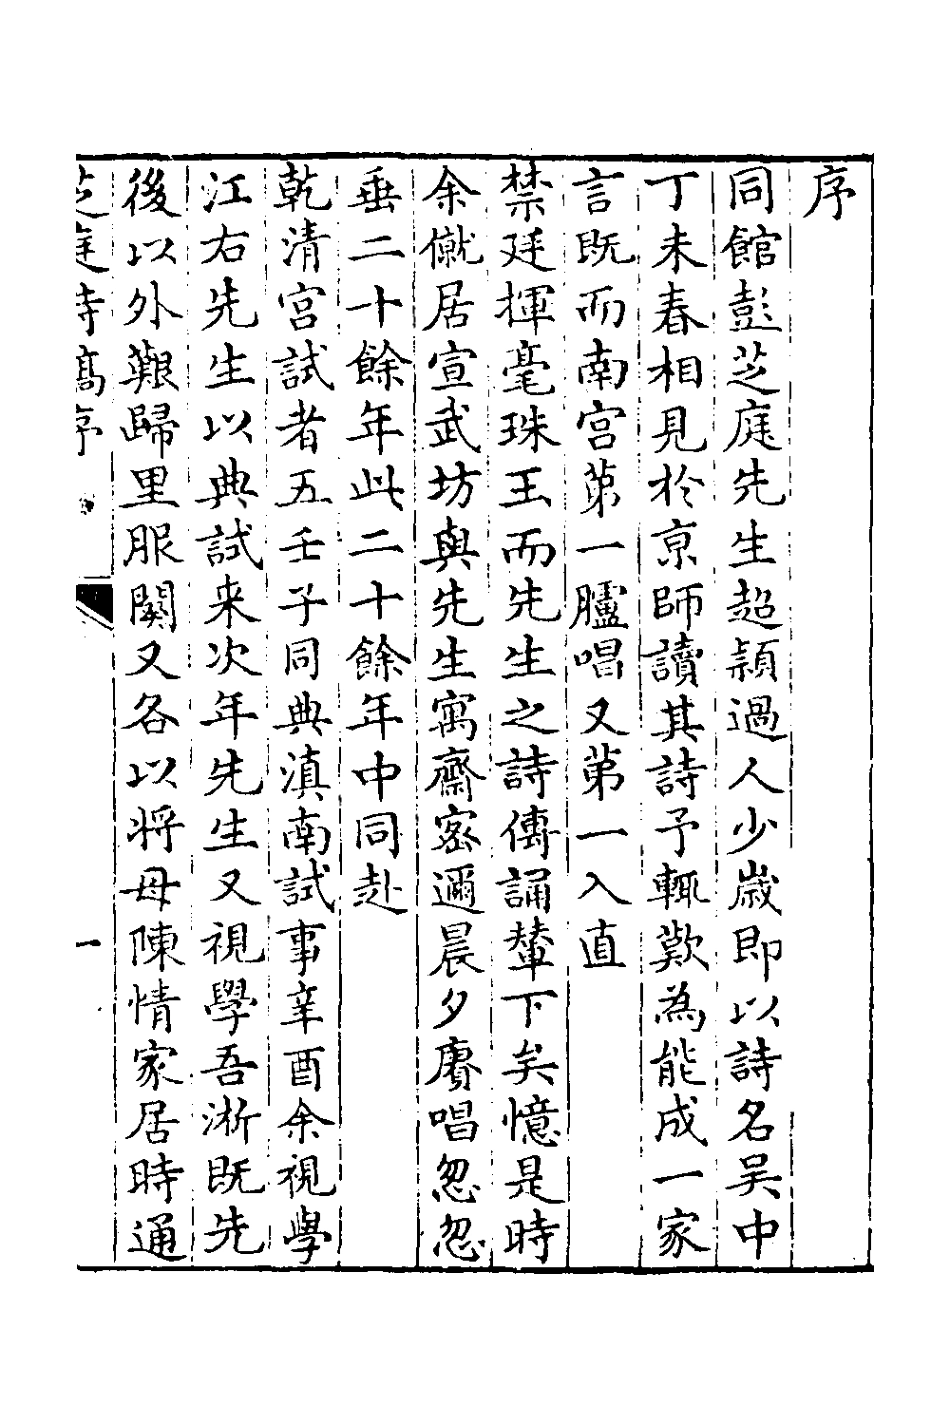 序
同館彭芝庭先生超穎過人少歲即以詩名吴中
丁未春相見於京師讀其詩予輒歎為能成一家
言既而南宫第一臚唱又第一入直
禁廷揮毫珠玉而先生之詩傳誦輦下矣憶是時
余僦居宣武坊與先生寓齋密邇晨夕賡唱忽忽
垂二十餘年此二十餘年中同赴
乾清宫試者五壬子同典滇南試事辛酉余視學
江右先生以典試来次年先生又視學吾淛既先
後以外艱歸里服闋又各以将母陳情家居時通
芝庭詩稿序
一